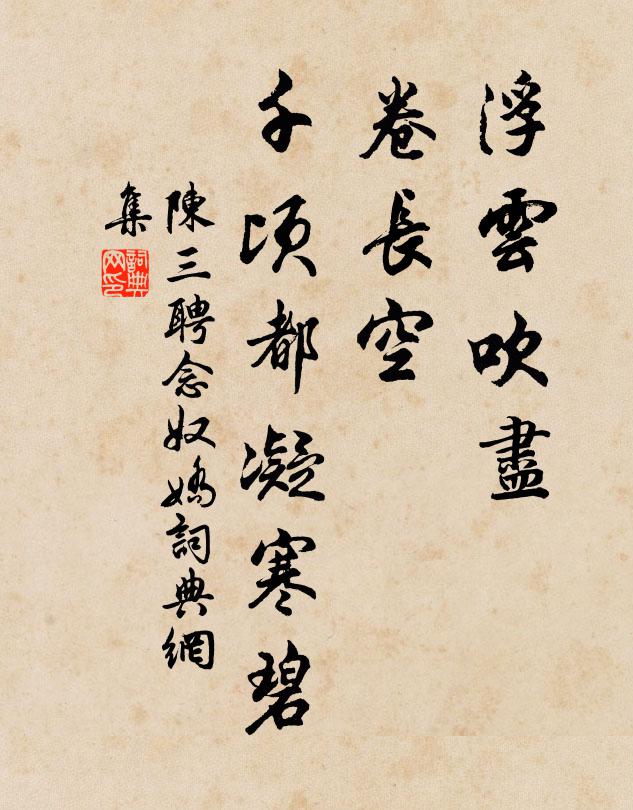 浮雲吹盡
卷長空
千頃都凝寒碧
陳三聘念奴嬌詞典網
集
詞典
网印